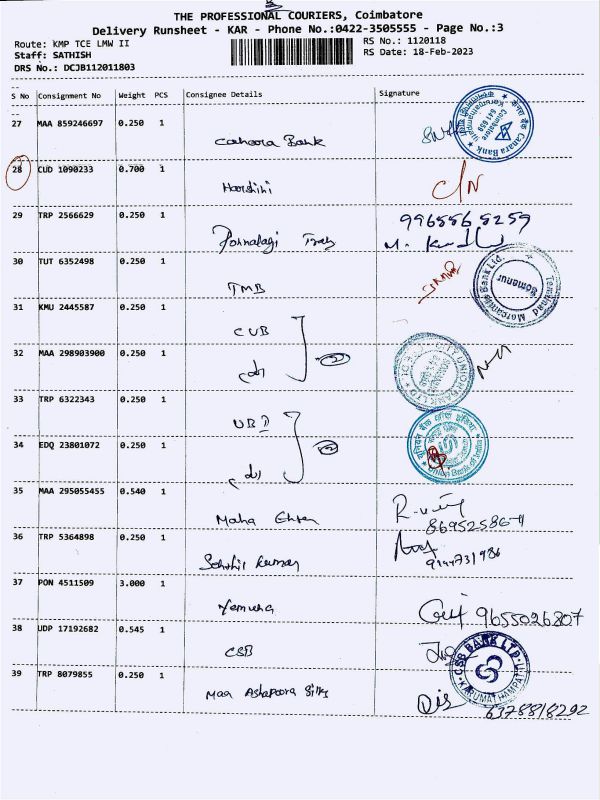 THE PROFESSIONAL COURIERS, Coimbatore
Delivery Runsheet - KAR - Phone No.:0422-3505555 - Page No.:3
Route: KMP TCE LMW II RS No.: 1120118
Staff: SATHISH RS Date: 18-Feb-2023
DRS No.: DCJB112011803
S No Consignment No Weight PCS Consignee Details Signature
27 MAA 859246697 0.250 1 Bank
Canara Bank
641 659
28 CUD 1090233 0.700 1 Harshini C/N
29 TRP 2566629 0.250 1 9965565259
30 TUT 6352498 0.250 1 TMB
Tamilnad Mercantile Bank Ltd.
Somanur
31 KMU 2445587 0.250 1 CUB
32 MAA 298903900 0.250 1 do (2)
CITY UNION BANK LTD
33 TRP 6322343 0.250 1 UBI
34 EDQ 23801072 0.250 1 do (2)
यूनियन बैंक ऑफ इंडिया
Union Bank of India
35 MAA 295055455 0.540 1 Maha
36 TRP 5364898 0.250 1 Kumar
37 PON 4511509 3.000 1 Yamuna 9655026807
38 UDP 17192682 0.545 1 CSB
CSB BANK LTD
KARUMATHAMPATTI
39 TRP 8079855 0.250 1 Maa Ashapoora Silks
6378818292